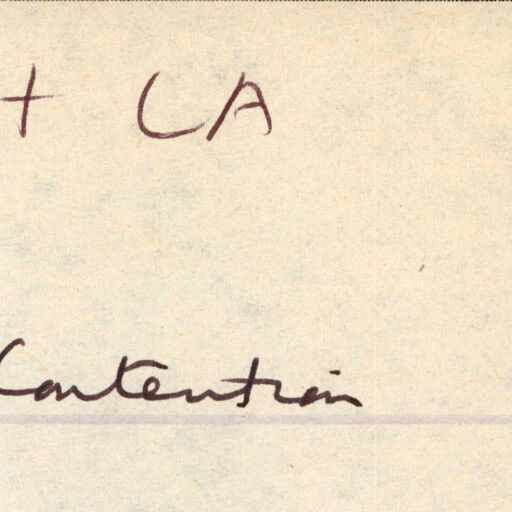 + LA
Contention